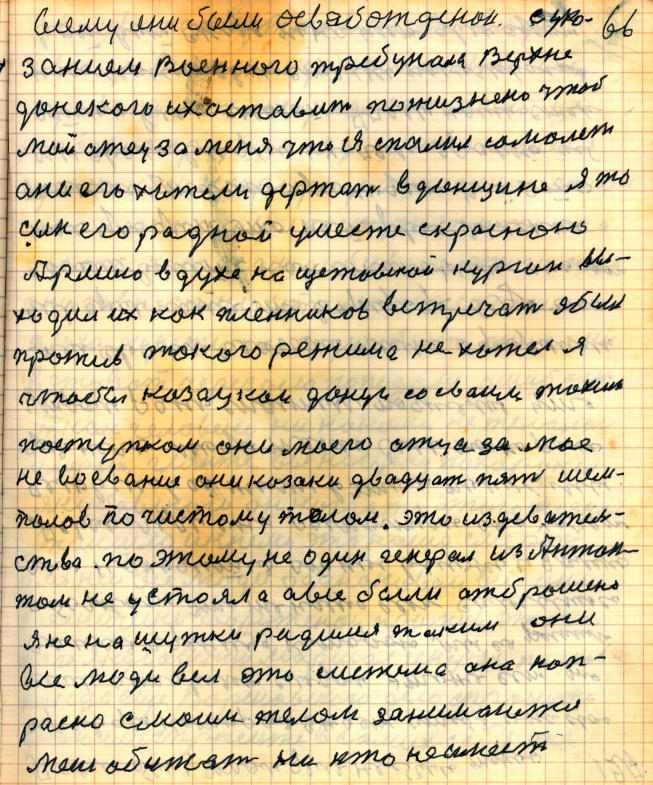 всему они были освабождении. сука- 66
занием Военного требунала Верхне
донского их оставит пожизнено чтоб
мой отец за меня что я спалил самолет
они его хотели держат в донщине я то
сын его радной уместе скрасною
Армию вдухе на щетовской курган вы-
ходил их как пленников встречат я был
против такого режима не хотел я
чтобы козацкой донци сосваим таким
поступком они моего отца за мое
не воевание они козаки двадцат пят шем-
полов по чистому телом. это издеватель-
ства. по этому не один генерал из Антан-
том не устояла а все были отброшено
я не на шутки радился таким они
все люди вел это система она нап-
расно смоим телом заниматся
меш обижат ни кто не смест